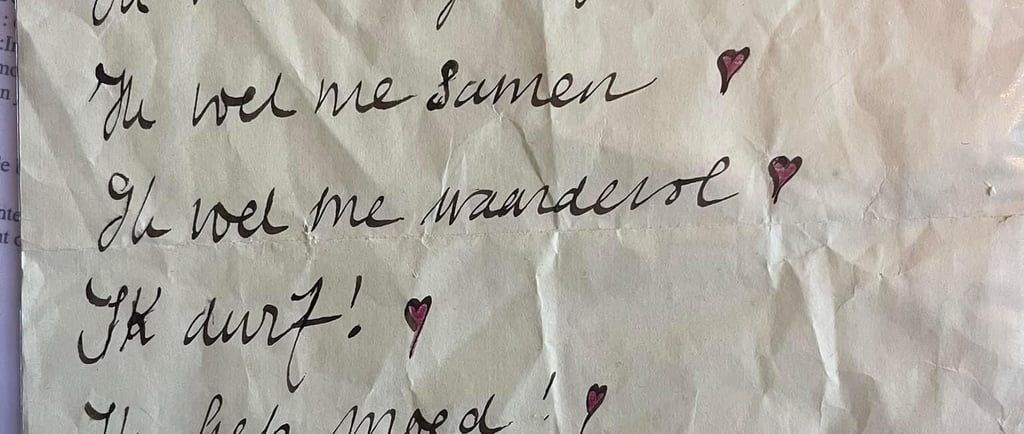 Ik voel me samen
Ik voel me waardevol
Ik durf!
Ik heb moed!